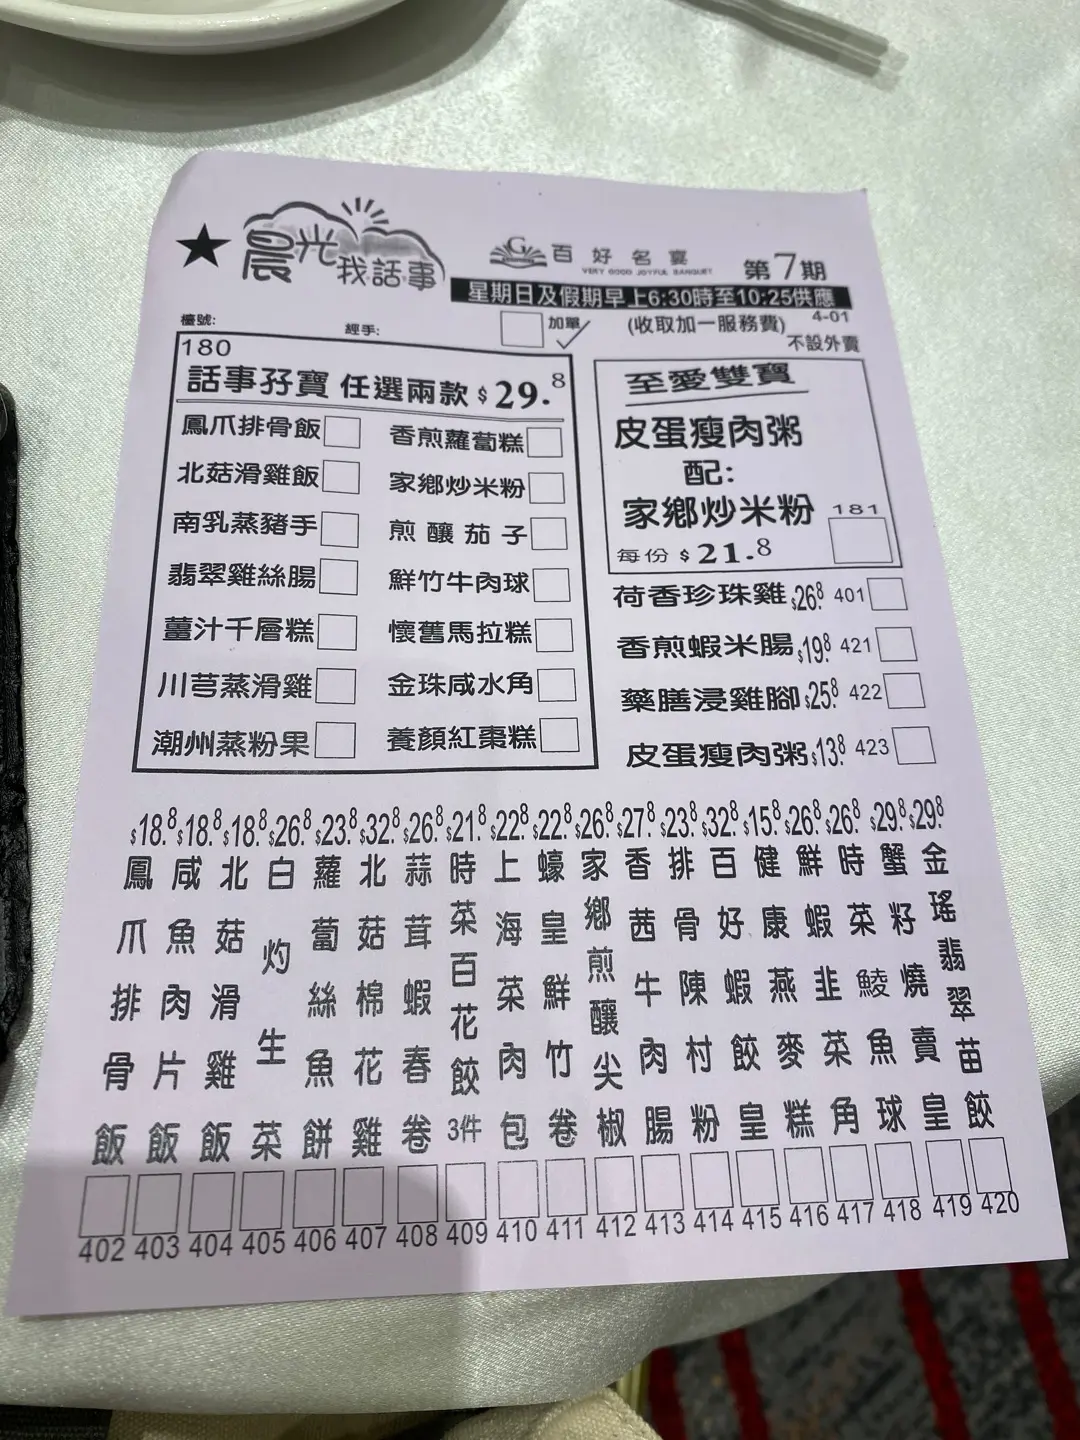 ★ 晨光我話事
G
百好名宴
VERY GOOD JOYFUL BANQUET
第7期
星期日及假期早上6:30時至10:25供應
檯號:
經手:
加單
(收取加一服務費)
4-01
不設外賣
180
話事孖寶 任選兩款 $29.8
鳳爪排骨飯
香煎蘿蔔糕
北菇滑雞飯
家鄉炒米粉
南乳蒸豬手
煎釀茄子
翡翠雞絲腸
鮮竹牛肉球
薑汁千層糕
懷舊馬拉糕
川芎蒸滑雞
金珠咸水角
潮州蒸粉果
養顏紅棗糕
至愛雙寶
皮蛋瘦肉粥
配:
家鄉炒米粉
181
每份 $21.8
荷香珍珠雞 $26.8 401
香煎蝦米腸 $19.8 421
藥膳浸雞腳 $25.8 422
皮蛋瘦肉粥 $13.8 423
$18.8 鳳爪排骨飯 402
$18.8 咸魚肉片飯 403
$18.8 北菇滑雞飯 404
$26.8 白灼生菜 405
$23.8 蘿蔔絲魚餅 406
$32.8 北菇棉花雞 407
$26.8 蒜茸蝦春卷 408
$21.8 時菜百花餃3件 409
$22.8 上海菜肉包 410
$22.8 蠔皇鮮竹卷 411
$26.8 家鄉煎釀尖椒 412
$27.8 香茜牛肉腸 413
$23.8 排骨陳村粉 414
$32.8 百好蝦餃皇 415
$15.8 健康燕麥糕 416
$26.8 鮮蝦韭菜角 417
$26.8 時菜鯪魚球 418
$29.8 蟹籽燒賣皇 419
$29.8 金瑤翡翠苗餃 420